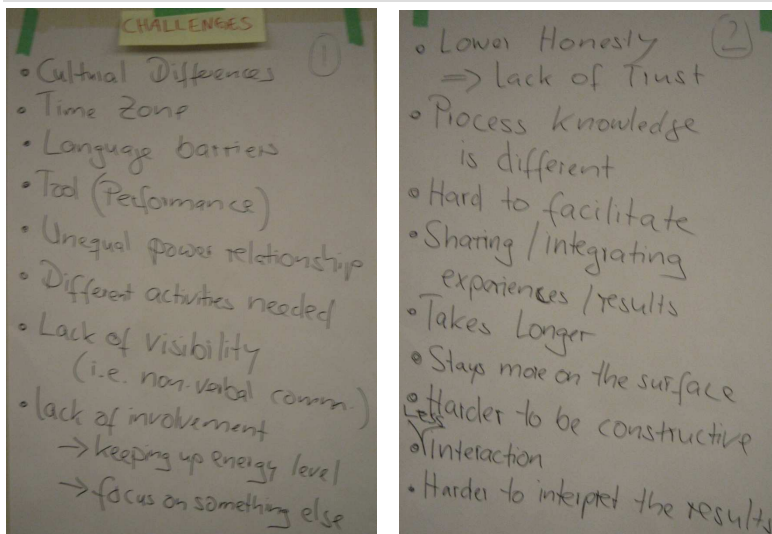 CHALLENGES
1
• Cultural Differences
• Time Zone
• Language barriers
• Tool (Performance)
• Unequal power relationship
• Different activities needed
• Lack of visibility
(i.e. non-verbal comm.)
• lack of involvement
→ keeping up energy level
→ focus on something else
2
• Lower Honesty
⇒ lack of Trust
• Process knowledge
is different
• Hard to facilitate
• Sharing / integrating
experiences / results
• Takes Longer
• Stays more on the surface
• Harder to be constructive
• Less Interaction
• Harder to interpret the results